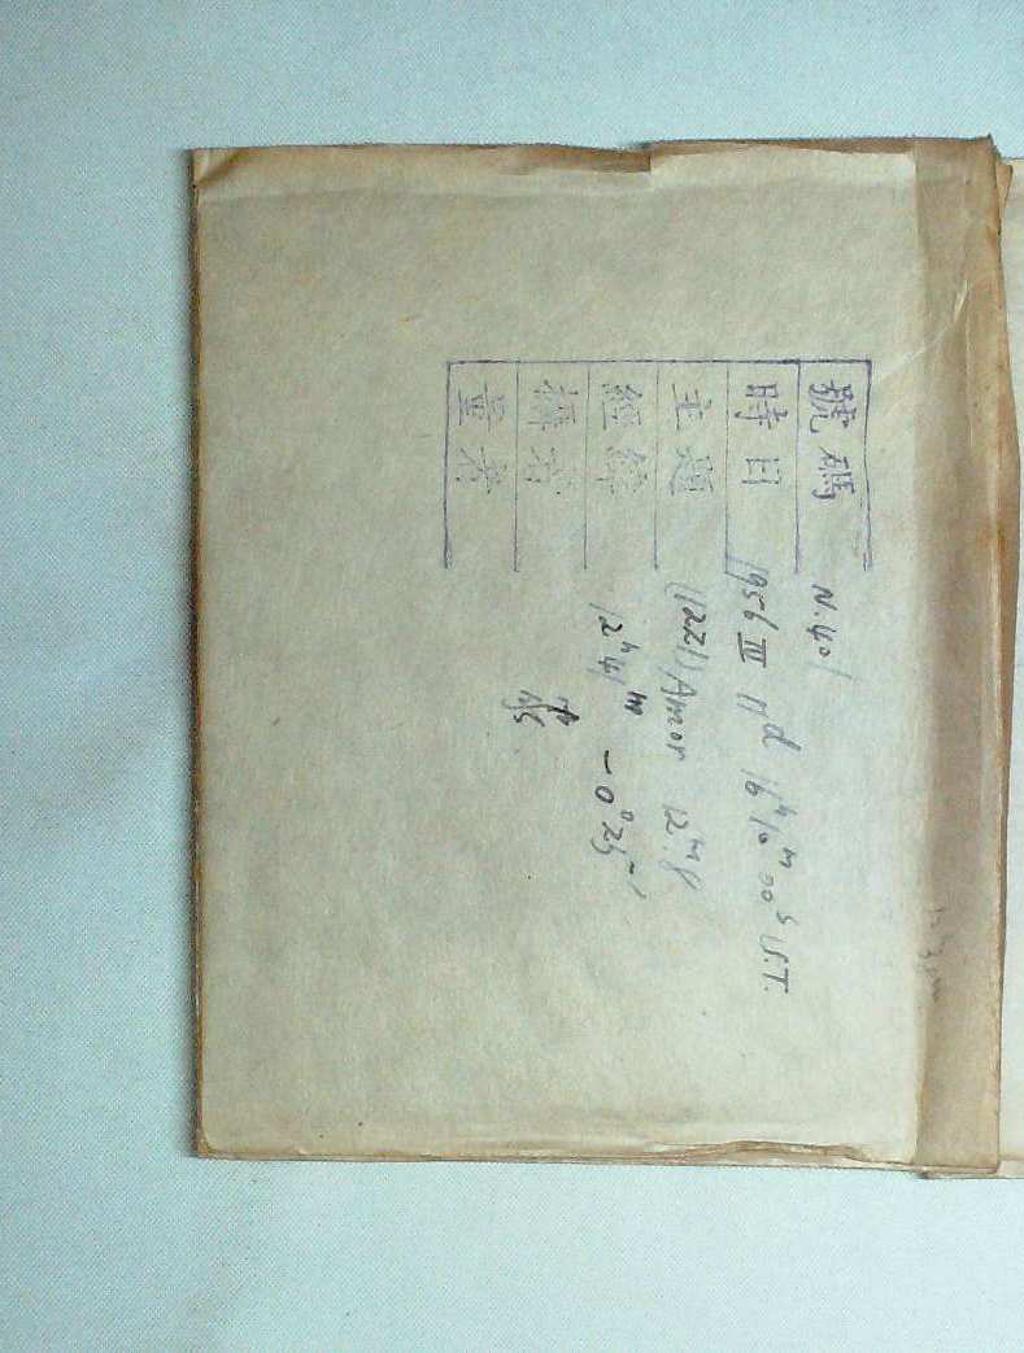 號碼 N.401
時日 1956 III 11d 16h10m00s U.T.
主題 (1221) Amor 12.m8
經緯 12h41m -0°25'
攝者
量者